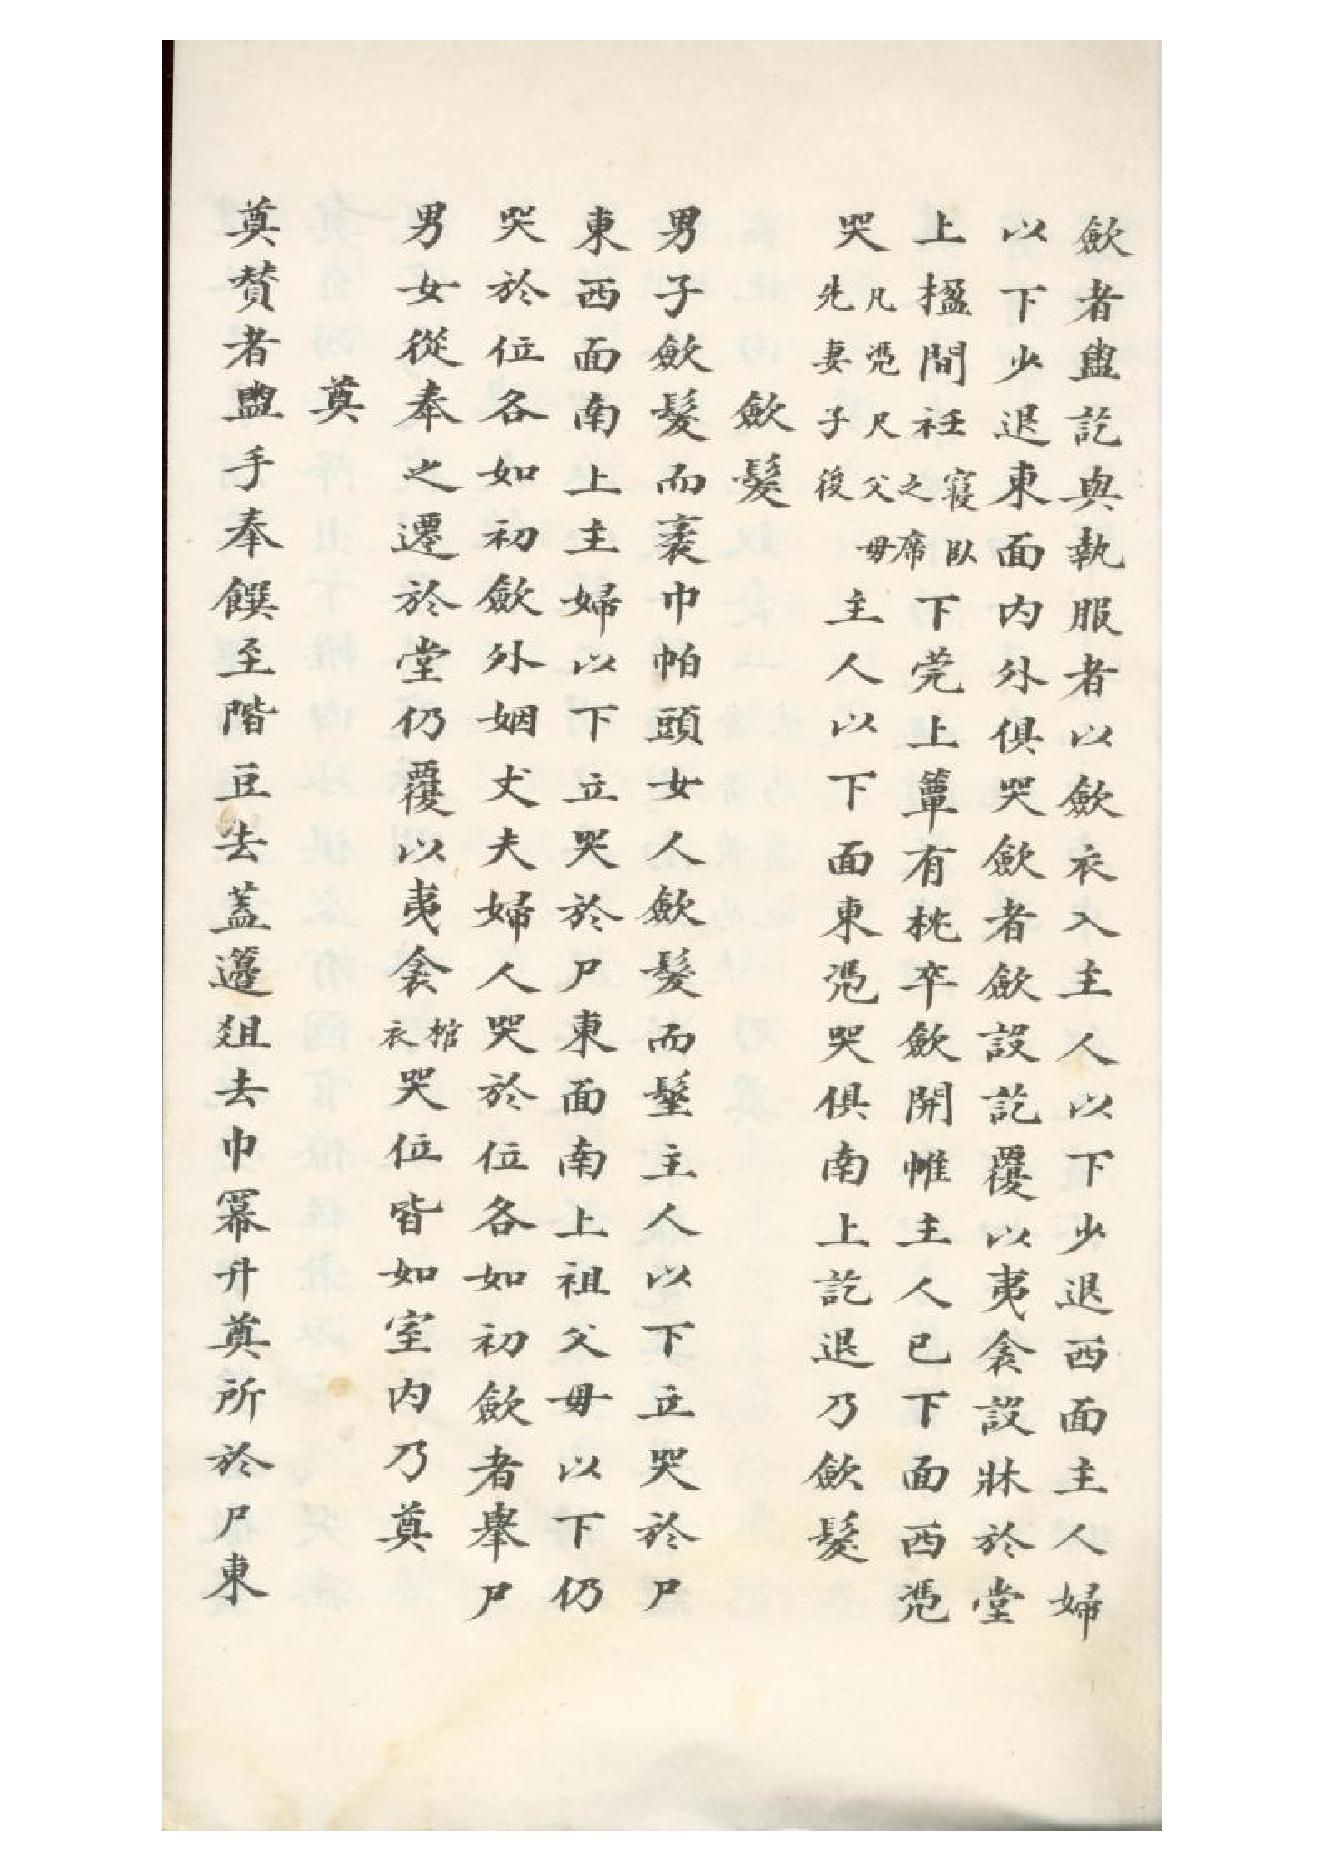 歛者盥訖與執服者以歛衣入主人以下少退西面主人婦
以下少退東面內外俱哭歛者歛設訖覆以夷衾設牀於堂
上楹間衽寢臥之席下莞上簟有枕卒歛開帷主人已下面西憑
哭凡憑尸父母先妻子後主人以下面東憑哭俱南上訖退乃歛髮
歛髮
男子歛髮而褁巾帕頭女人歛髮而髽主人以下立哭於尸
東西面南上主婦以下立哭於尸東面南上祖父母以下仍
哭於位各如初歛外姻丈夫婦人哭於位各如初歛者舉尸
男女從奉之遷於堂仍覆以夷衾棺衣哭位皆如室內乃奠
奠
奠賛者盥手奉饌至階豆去蓋籩俎去巾冪升奠所於尸東